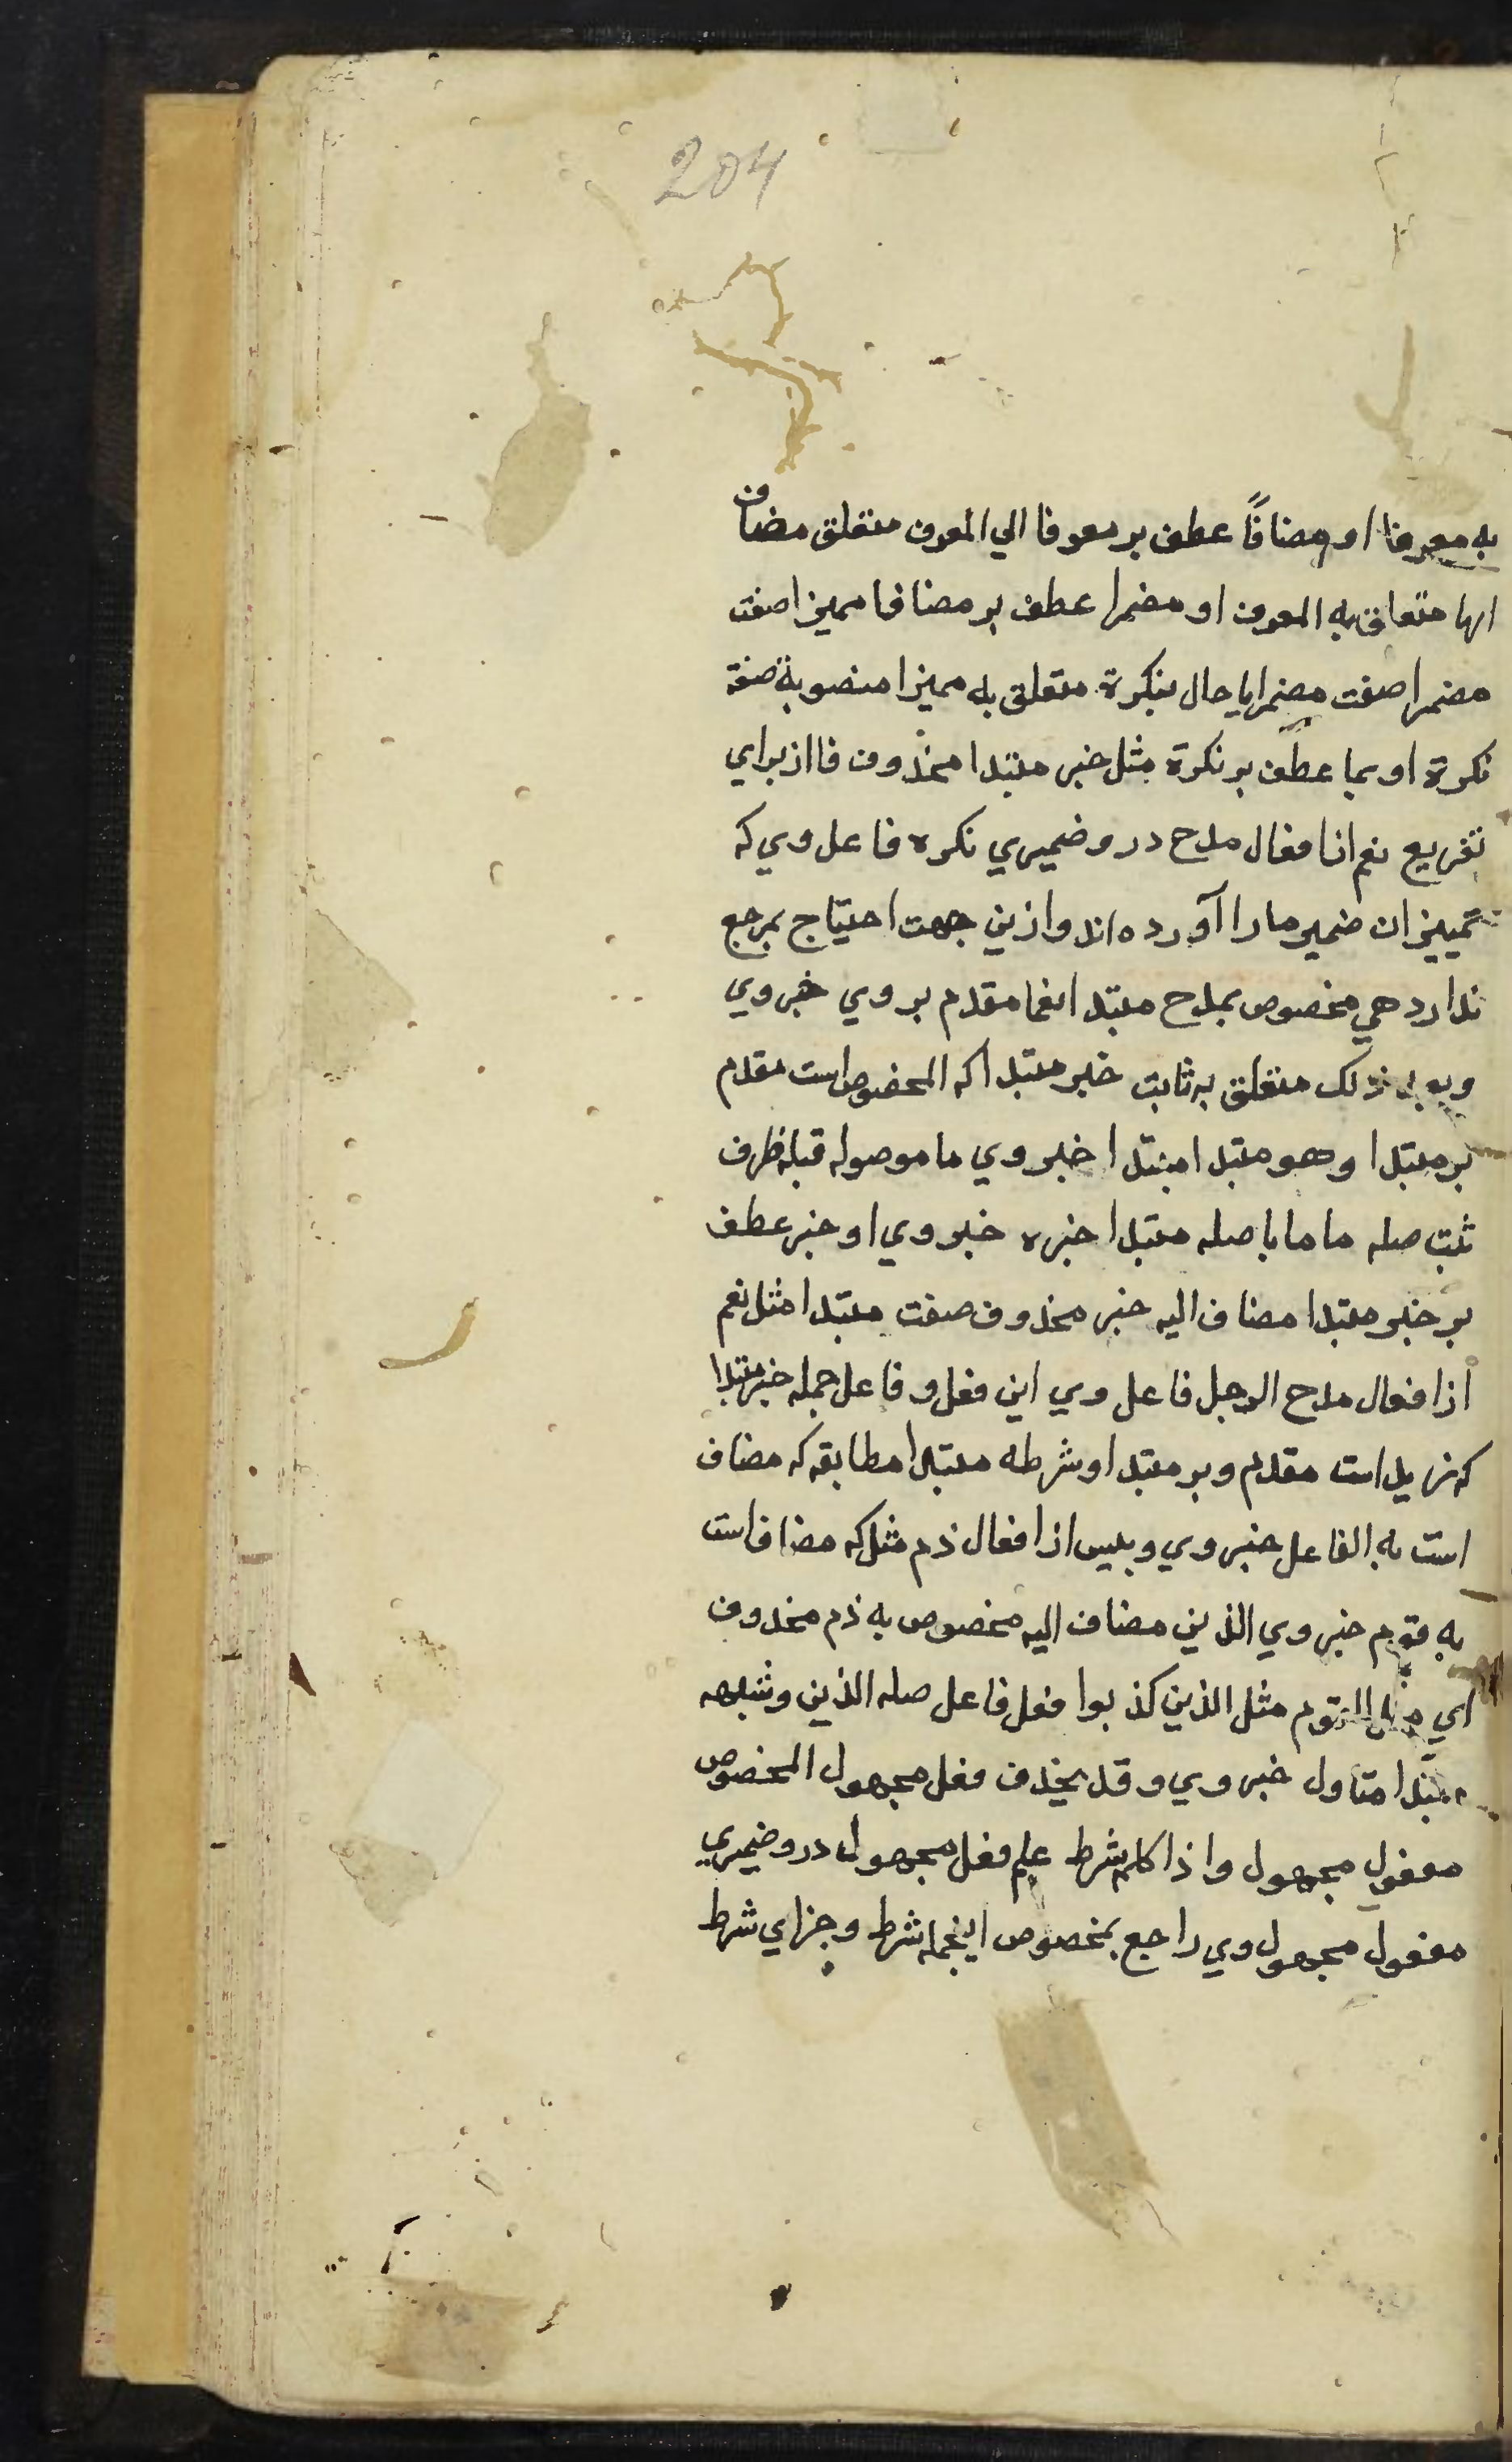 204
به معرفا او مضافًا عطف بر معرفا الي المعرف متعلق مضاف
ايها متعلق به المعرف او مضمرا عطف بر مضافا مميزا صفت
مضمرا صفت مضمرا يا حال بنكرة متعلق به مميزا منصوبة صفة
نكرة او بما عطف بر نكرة مثل خبر مبتدا محذوف فا از براي
تفريع نعم از افعال مدح درو ضميري نكره فاعل وي كه
تمييز ان ضمير ما را آورده اند و ازين جهت احتياج بمرجع
ندارد هي مخصوص بمدح مبتدا نعما مقدم بر وي خبر وي
و بعد ذلك متعلق به ثابت خبر مبتدا كه المخصوص است مقدم
بر مبتدا و هو مبتدا مبتدا خبر وي ما موصوله قبله ظرف
ثبت صله ما ما با صله مبتدا خبره خبر وي او خبر عطف
بر خبر مبتدا مضاف اليه خبر محذوف صفت مبتدا مثل نعم
از افعال مدح الرجل فاعل وي اين فعل و فاعل جمله خبر مبتدا
كه زيد است مقدم و بر مبتدا و شرطه مبتدا مطابقه كه مضاف
است به الفاعل خبر وي و بئيس از افعال ذم مثل كه مضاف است
به قوم خبر وي الذين مضاف اليه مخصوص به ذم محذوف
اي مثل القوم مثل الذين كذبوا فعل فاعل صله الذين و شبهه
مبتدا متاول خبر وي و قد يحذف فعل مجهول المخصوص
مفعول مجهول و اذا كلمه شرط علم فعل مجهول درو ضميري
مفعول مجهول وي راجع بمخصوص اينجمله شرط و جزاي شرط